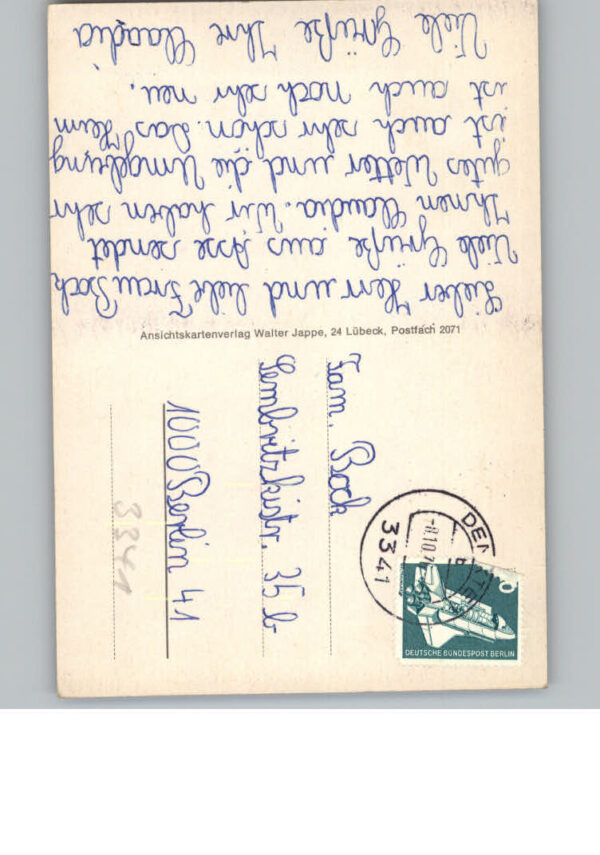 Lieber Herr und liebe Frau Bock
Viele Grüße aus Asse sendet
Ihnen Claudia. Wir haben sehr
gutes Wetter und die Umgebung
ist auch sehr schön. Das Heim
ist auch noch sehr neu.
Viele Grüße Ihre Claudia
Ansichtskartenverlag Walter Jappe, 24 Lübeck, Postfach 2071
Fam. Bock
Sembritzkistr. 35 b
1000 Berlin 41
3341
3341
DEUTSCHE BUNDESPOST BERLIN